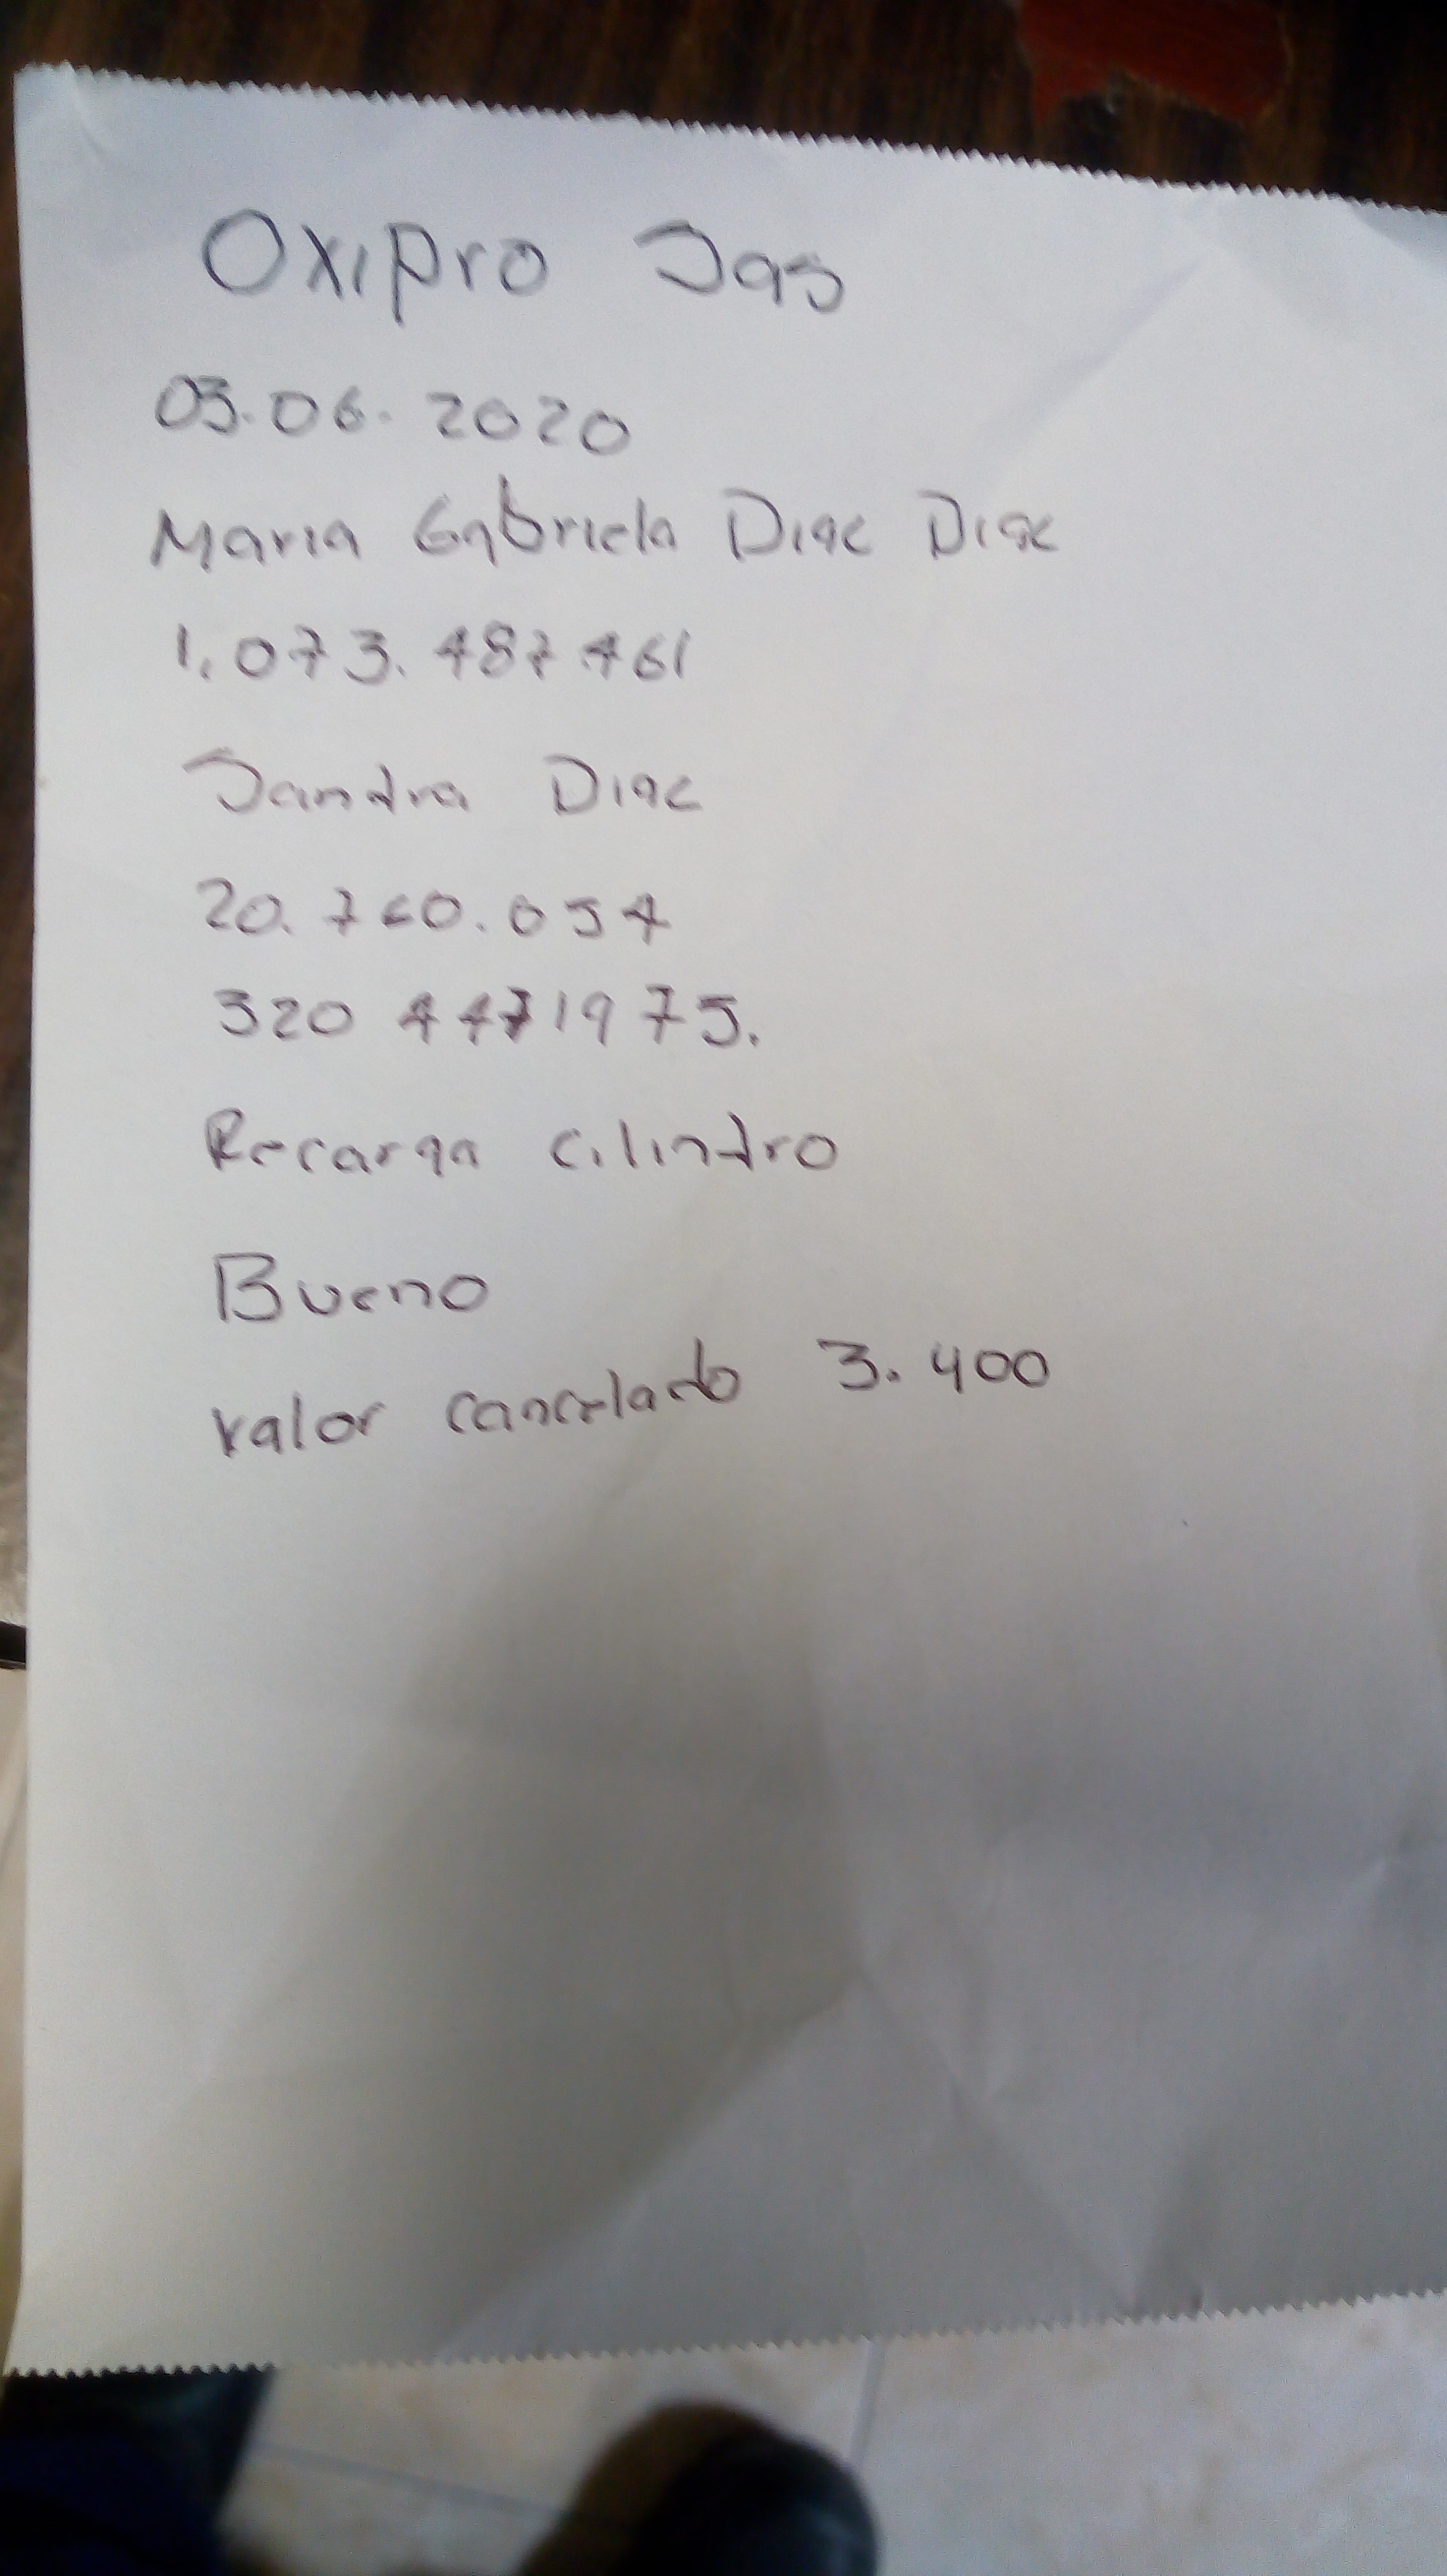 Oxipro Sas
03.06.2020
Maria Gabriela Diaz Diaz
1.073.487461
Sandra Diaz
20.760.054
320 4471975.
Recarga cilindro
Bueno
valor cancelado 3.400